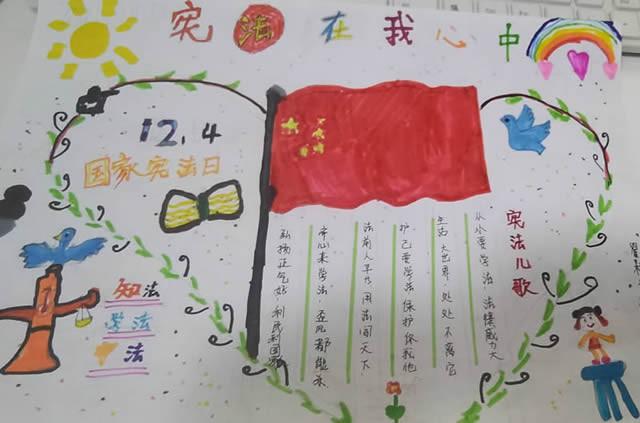 宪法在我心中
12.4
国家宪法日
知法
学法
法
宪法儿歌
从小要学法,法律威力大
生活大世界,处处不离它
护己要学法,保护你我他
法前人平等,用法闯天下
弘扬正气好,利民利国家